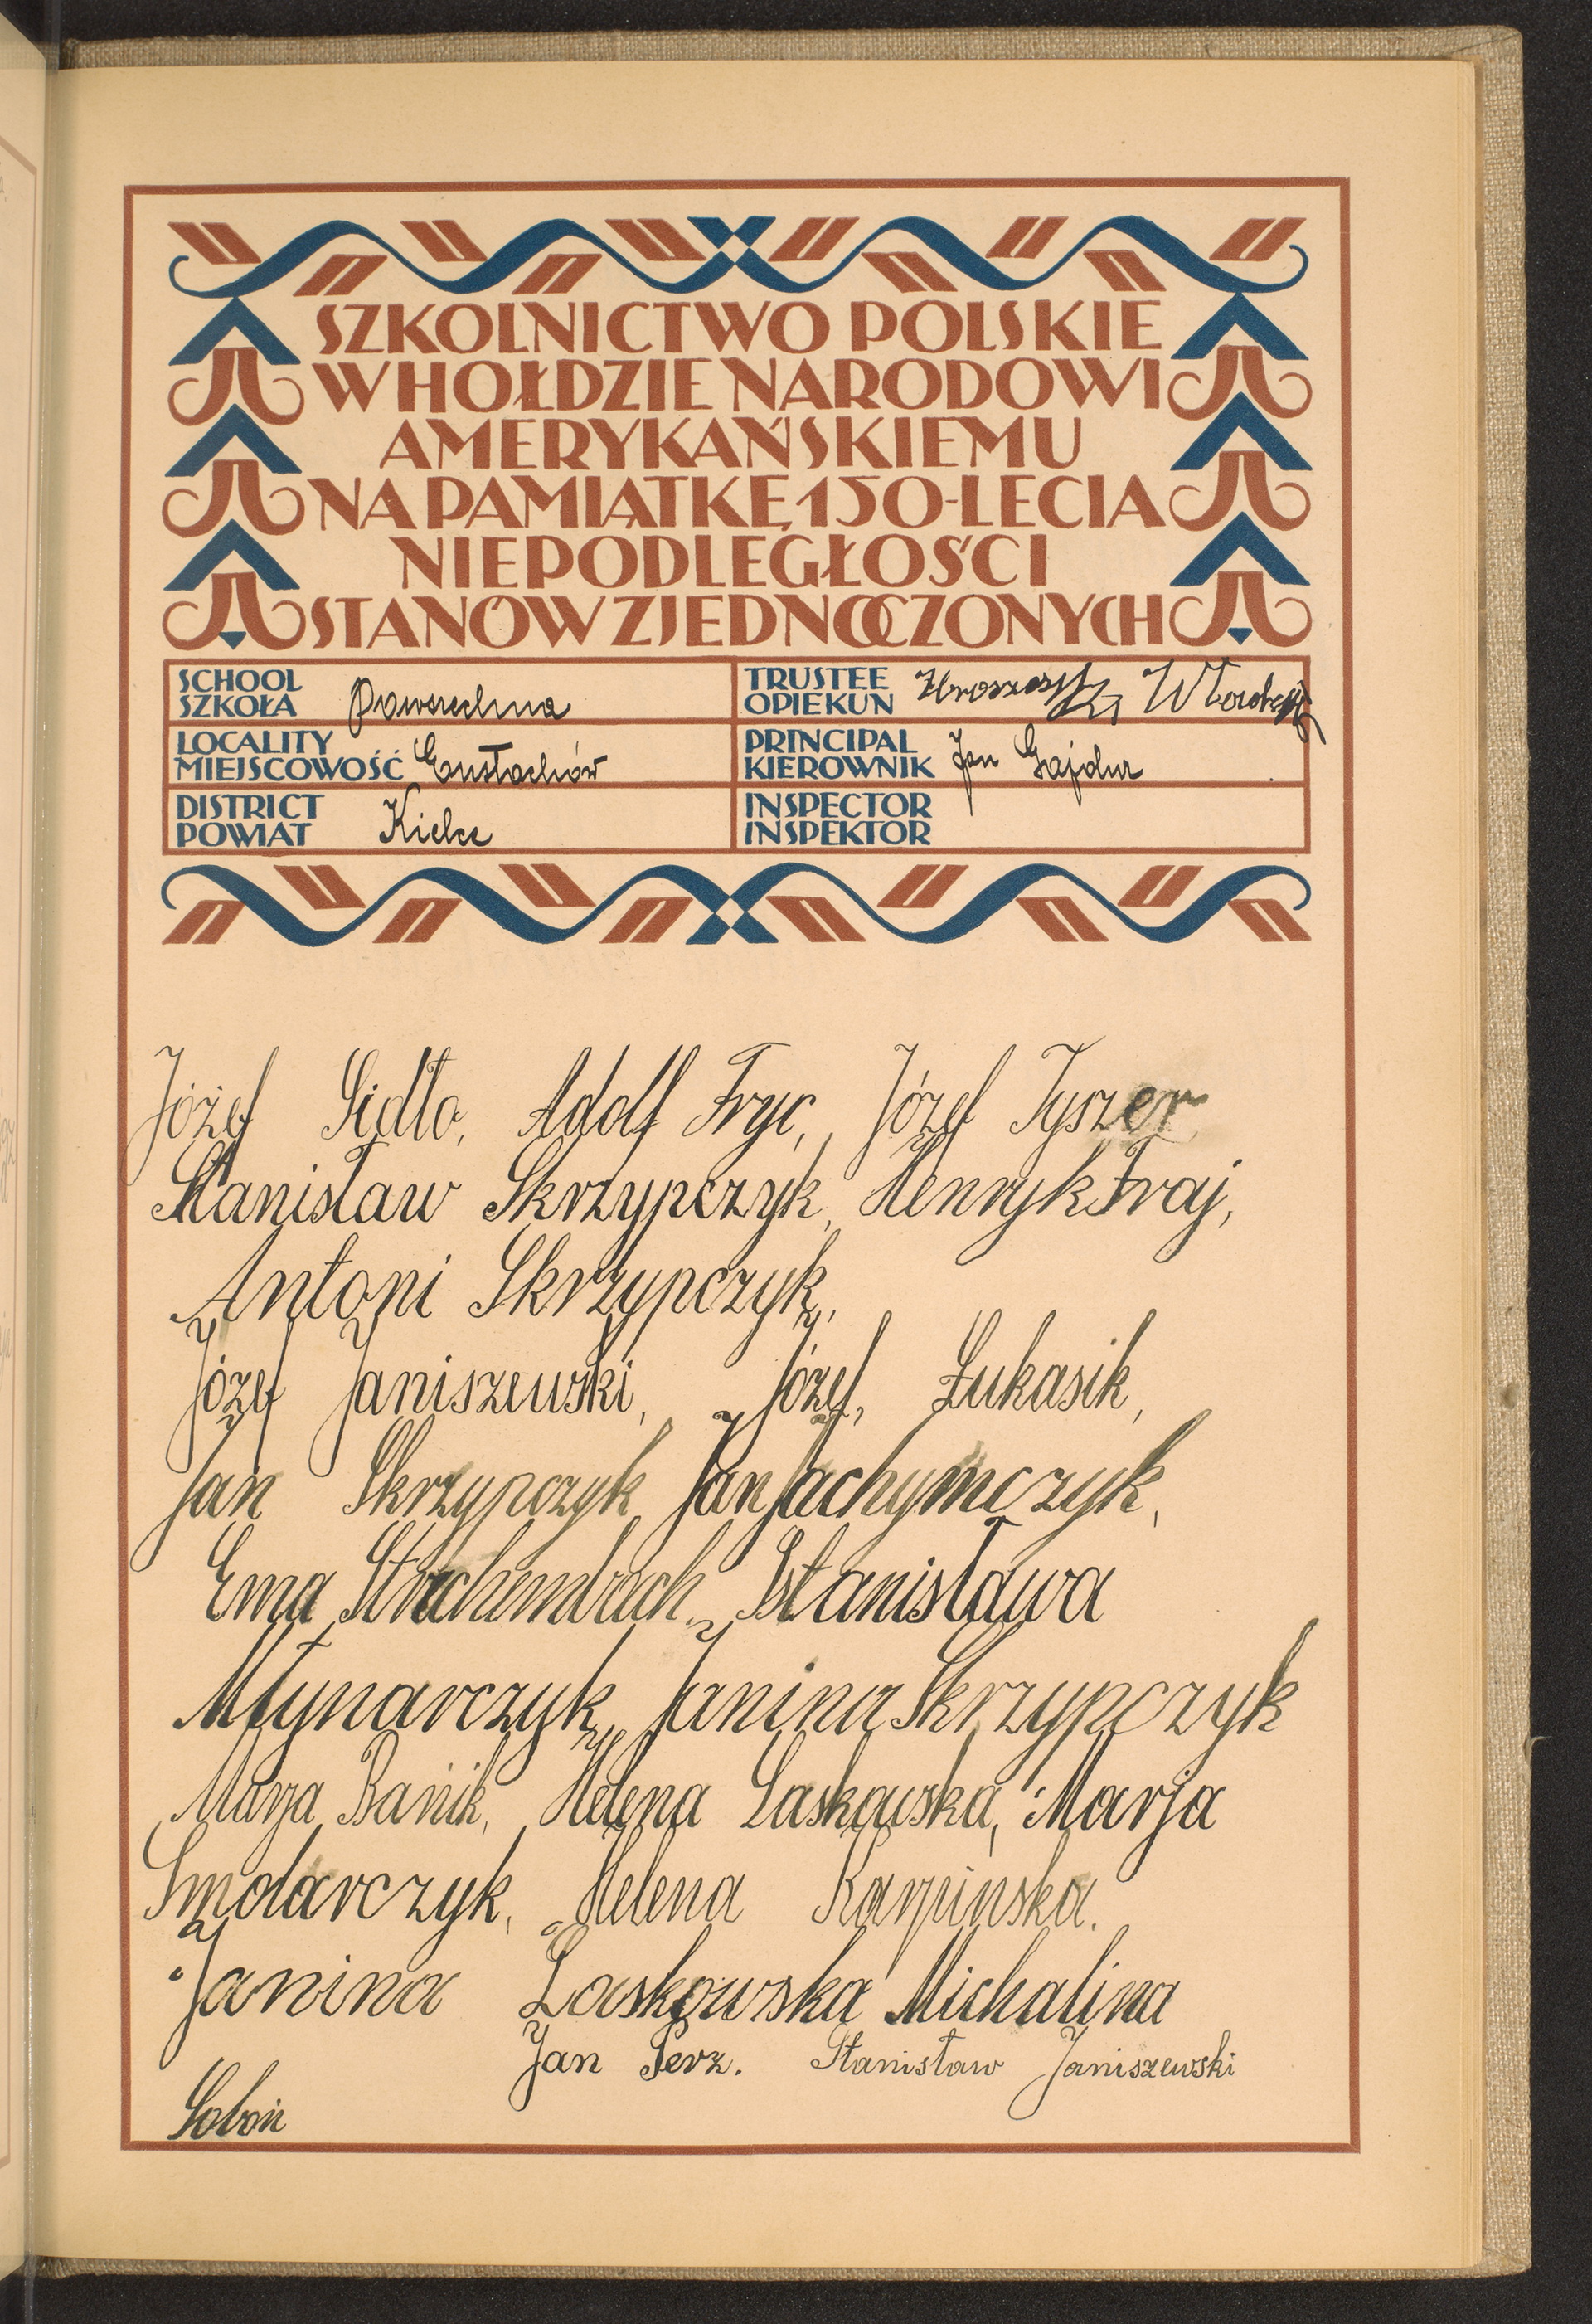 SZKOLNICTWO POLSKIE
W HOŁDZIE NARODOWI
AMERYKAŃSKIEMU
NA PAMIĄTKĘ 150-LECIA
NIEPODLEGŁOŚCI
STANÓW ZJEDNOCZONYCH
SCHOOL
SZKOŁA Powszechna
TRUSTEE
OPIEKUN
LOCALITY
MIEJSCOWOŚĆ Eustachów
PRINCIPAL
KIEROWNIK Jan Gajdur
DISTRICT
POWIAT Kielce
INSPECTOR
INSPEKTOR
Józef Sidło, Adolf Fryc, Józef Tyszer
Stanisław Skrzypczyk, Henryk Fraj,
Antoni Skrzypczyk,
Józef Janiszewski, Józef, Łukasik,
Jan Skrzypczyk Jan Jachymczyk,
Ema Stachembach, Stanisława
Młynarczyk, Janina Skrzypczyk
Marja Banik, Helena Laskowska, Marja
Smolarczyk, Helena Karpinska.
Janina Laskowska Michalina
Jan Perz. Stanisław Janiszewski
Soboń